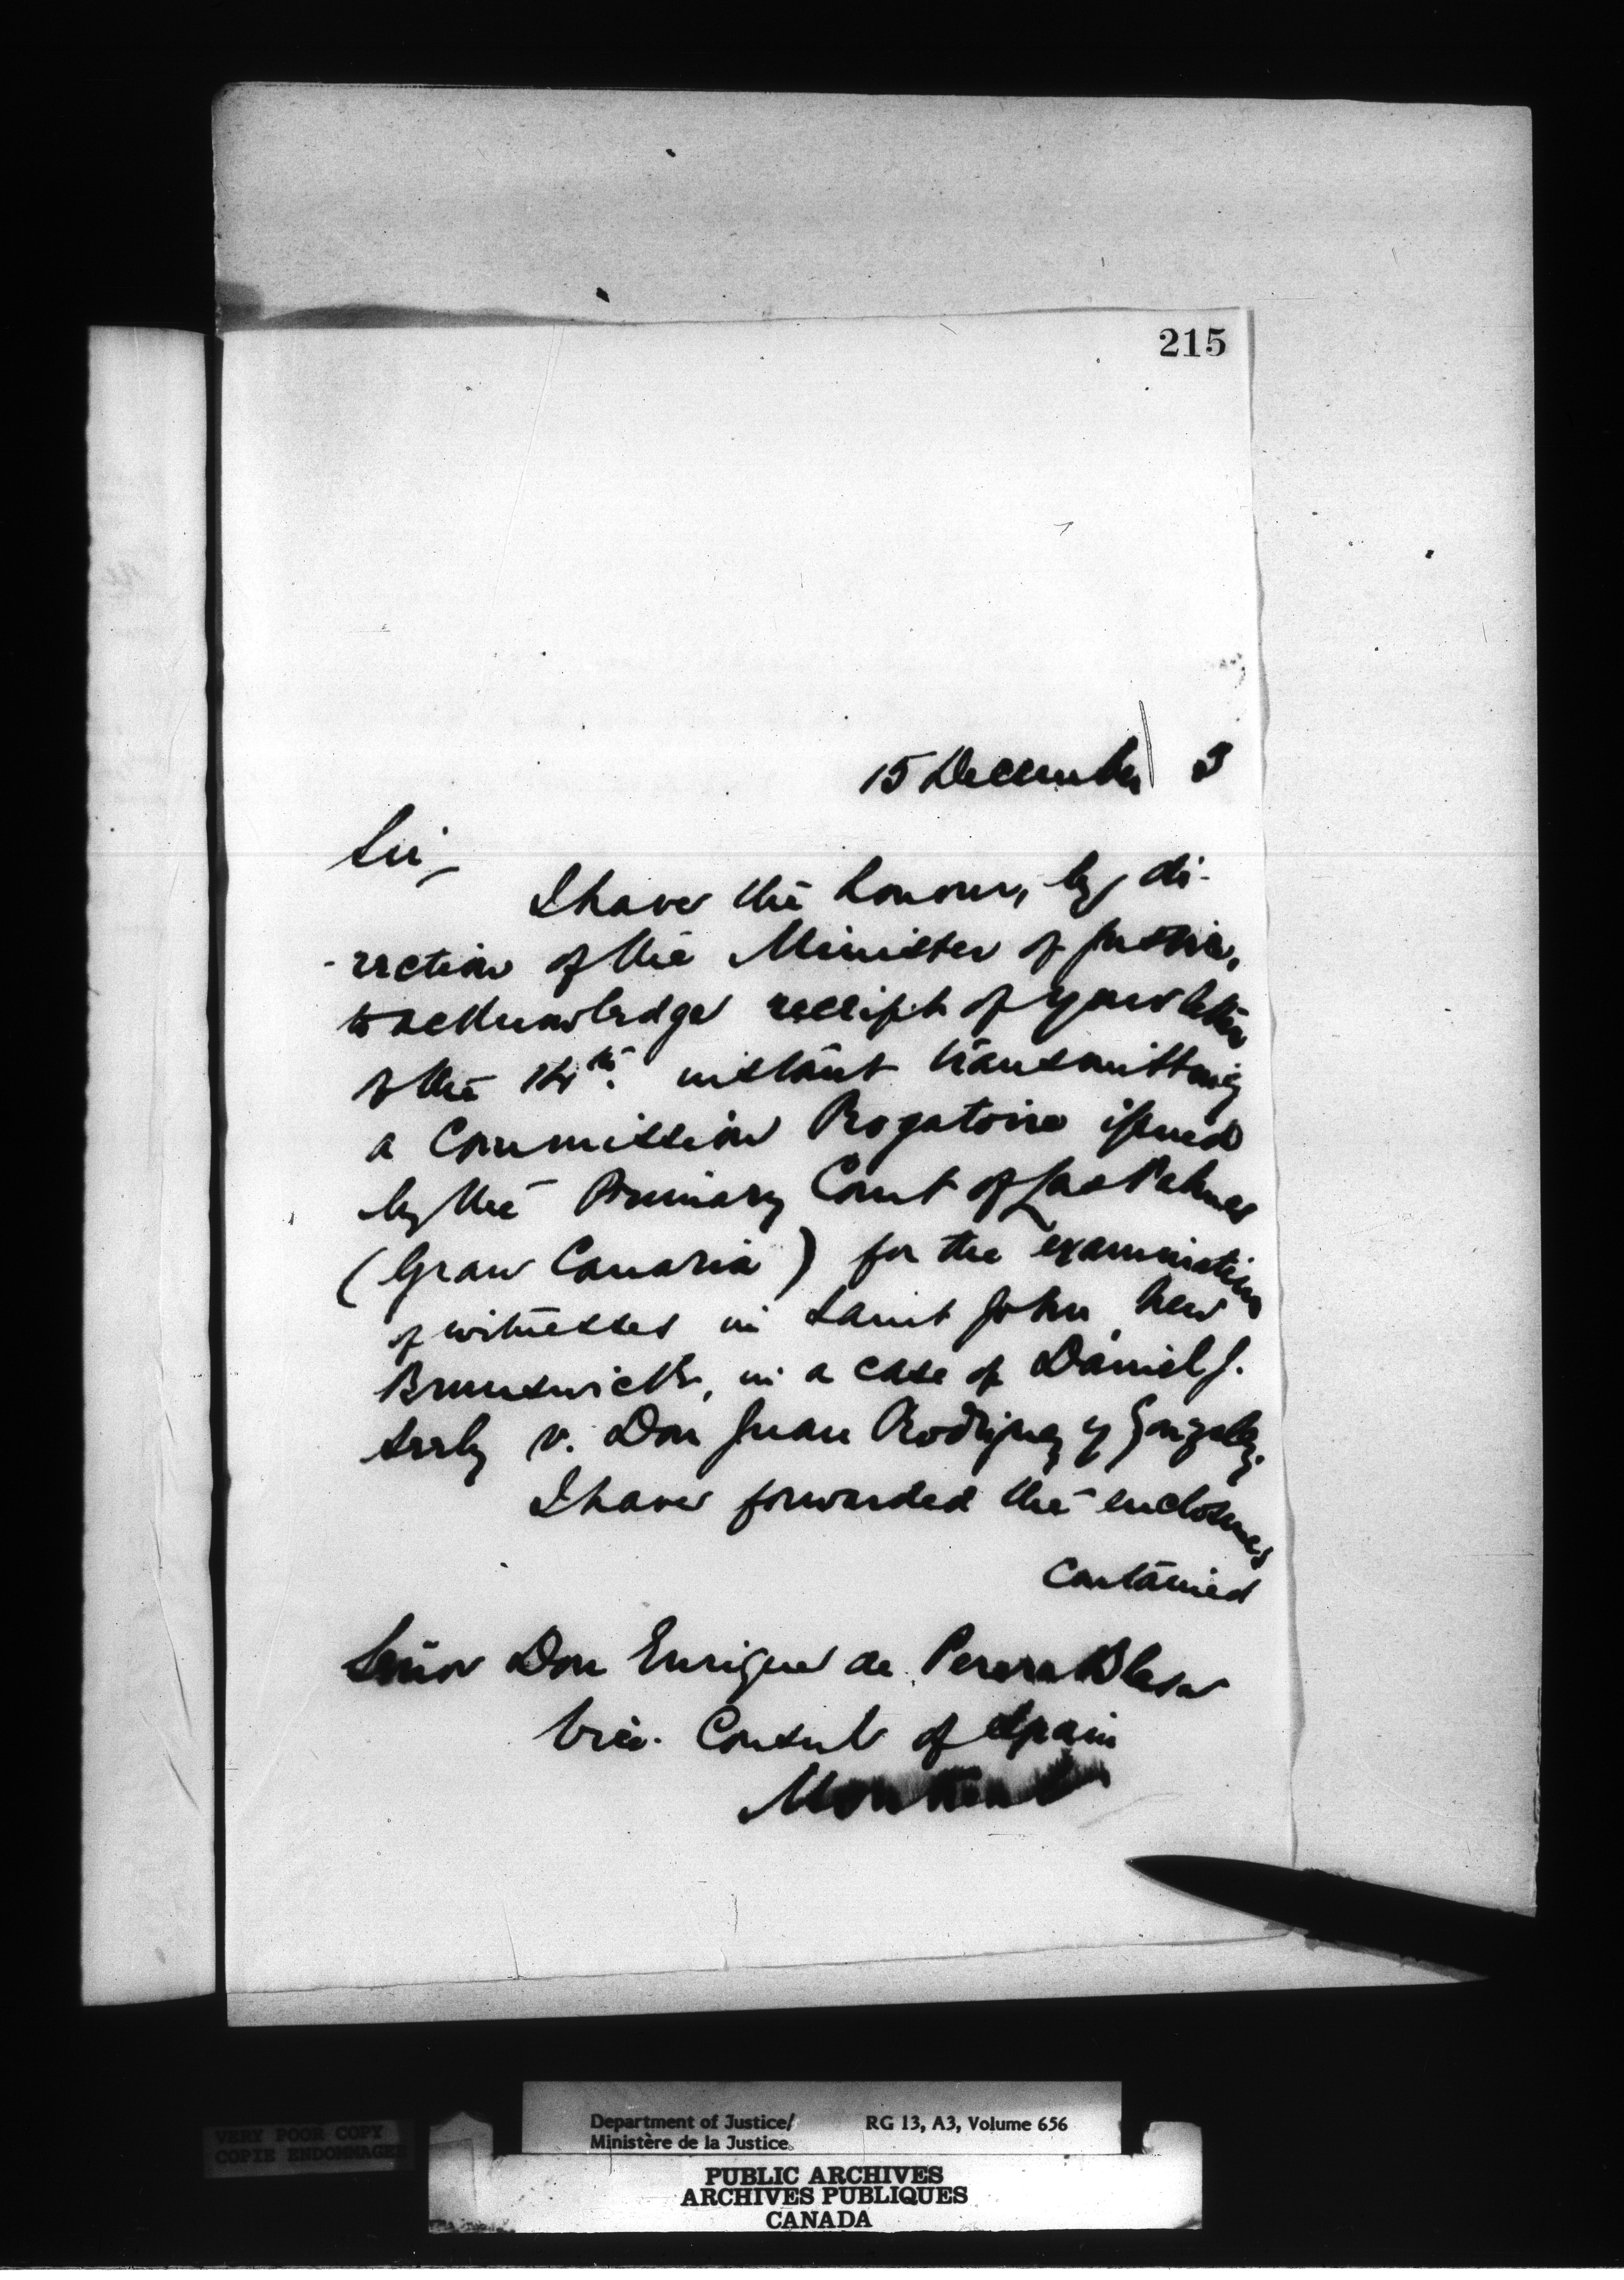 215
15 December 3
Sir,
I have the honour, by di-
-rection of the Minister of Justice,
to acknowledge receipt of your letter
of the 14th. instant transmitting
a Commission Rogatoire issued
by the Primary Court of Las Palmas
(Gran Canaria) for the examination
of witnesses in Saint John, New
Brunswick, in a case of Daniel J.
v. Don Juan Rodriguez y Gonzalez.
I have forwarded the enclosures
contained
Señor Don Enrique de Perera Blesa
Vice-Consul of Spain
Montreal
Department of Justice/
Ministère de la Justice
RG 13, A3, Volume 656
VERY POOR COPY
COPIE ENDOMMAGEE
PUBLIC ARCHIVES
ARCHIVES PUBLIQUES
CANADA